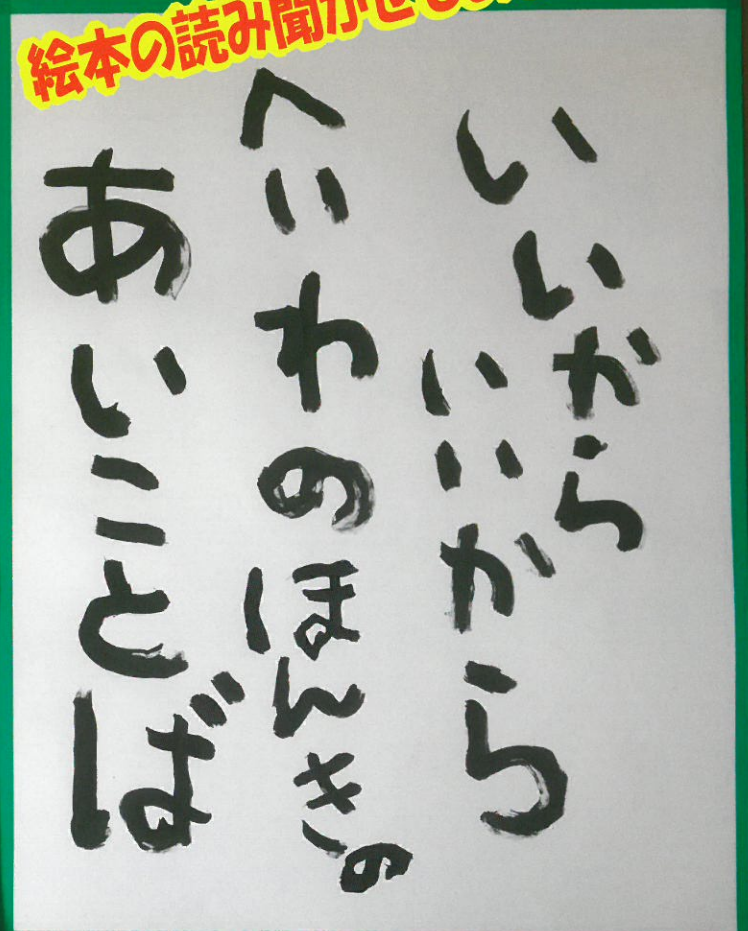 絵本の読み聞かせ
いいから
いいから
へいわのほんきの
あいことば